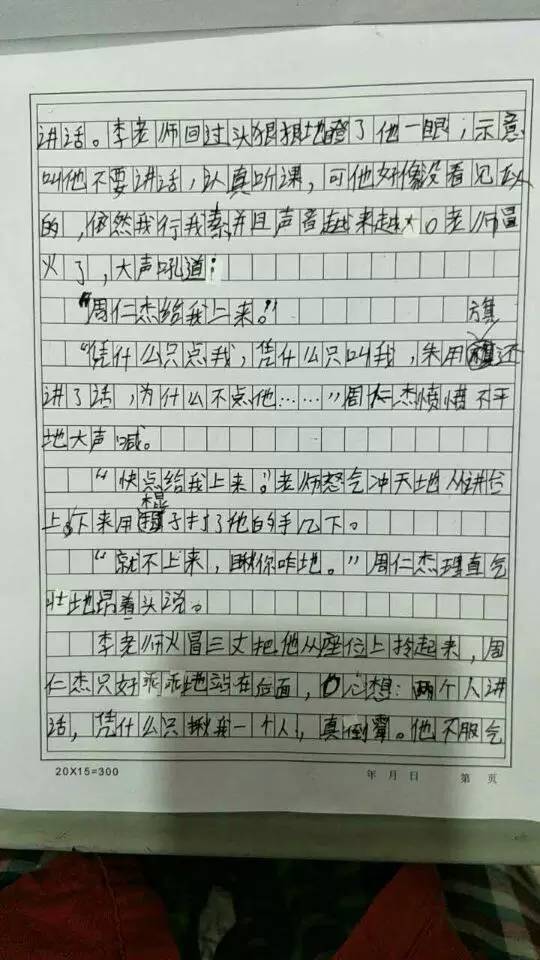 讲话。李老师回过头狠狠地瞪了他一眼；示意
叫他不要讲话，认真听课，可他好像没看见似
的，依然我行我素，并且声音越来越大。老师冒
火了，大声吼道：
“周仁杰给我上来。”
旗
“凭什么只点我，凭什么只叫我，朱用还
讲了话，为什么不点他……”周仁杰愤愤不平
地大声喊。
“快点给我上来！”老师怒气冲天地从讲台
棍
上下来用子打了他的手几下。
“就不上来，瞅你咋地。”周仁杰理直气
壮地昂着头说。
李老师火冒三丈把他从座位上拎起来，周
仁杰只好乖乖地站在后面，心想：两个人讲
话，凭什么只揪我一个人，真倒霉。他不服气
20X15=300
年 月 日 第 页